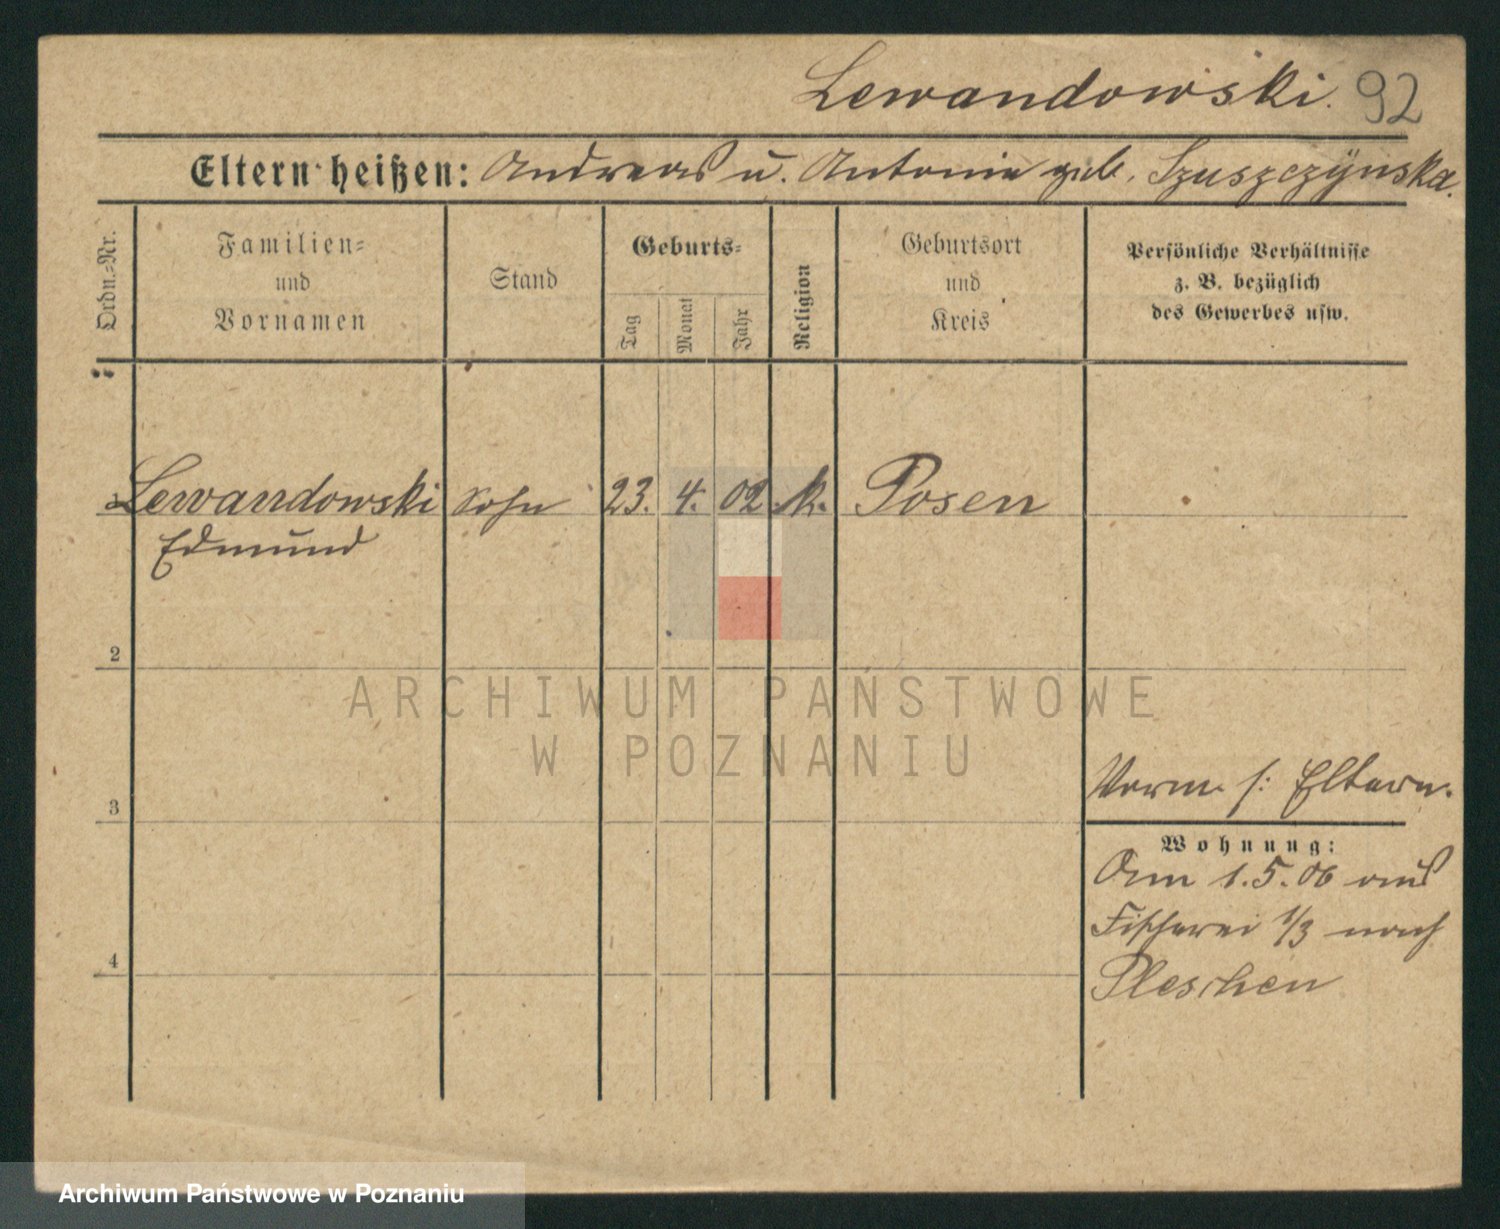 Lewandowski. 92
Eltern heißen: Andreas u. Antonie geb. Szuszczÿnska.
Ordn.-Nr.
Familien-
und
Vornamen
Stand
Geburts-
Tag
Monat
Jahr
Religion
Geburtsort
und
Kreis
Persönliche Verhältnisse
z. B. bezüglich
des Gewerbes usw.
Lewandowski Sohn 23. 4. 02. k. Posen
Edmund
2
ARCHIWUM PAŃSTWOWE
W POZNANIU
3
Vorm. s: Eltern.
Wohnung:
Am 1.5.06 aus
Fischerei 1/3 nach
Pleschen
4
Archiwum Państwowe w Poznaniu